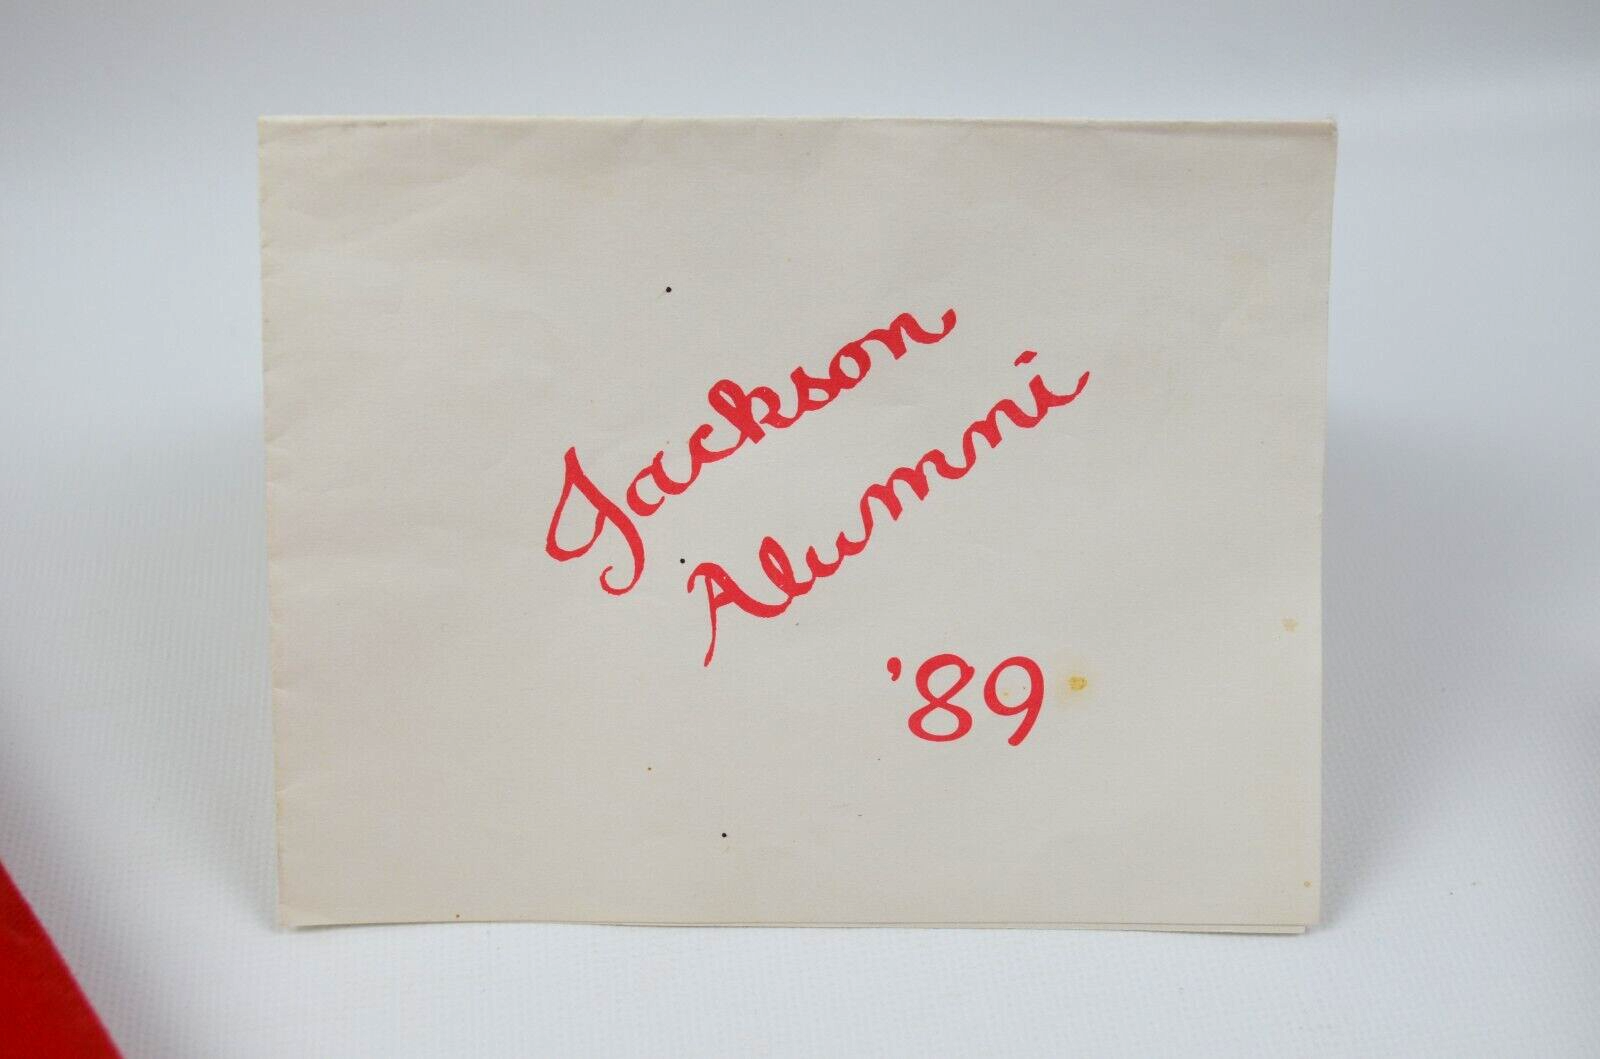 Jackson
Alumni
'89